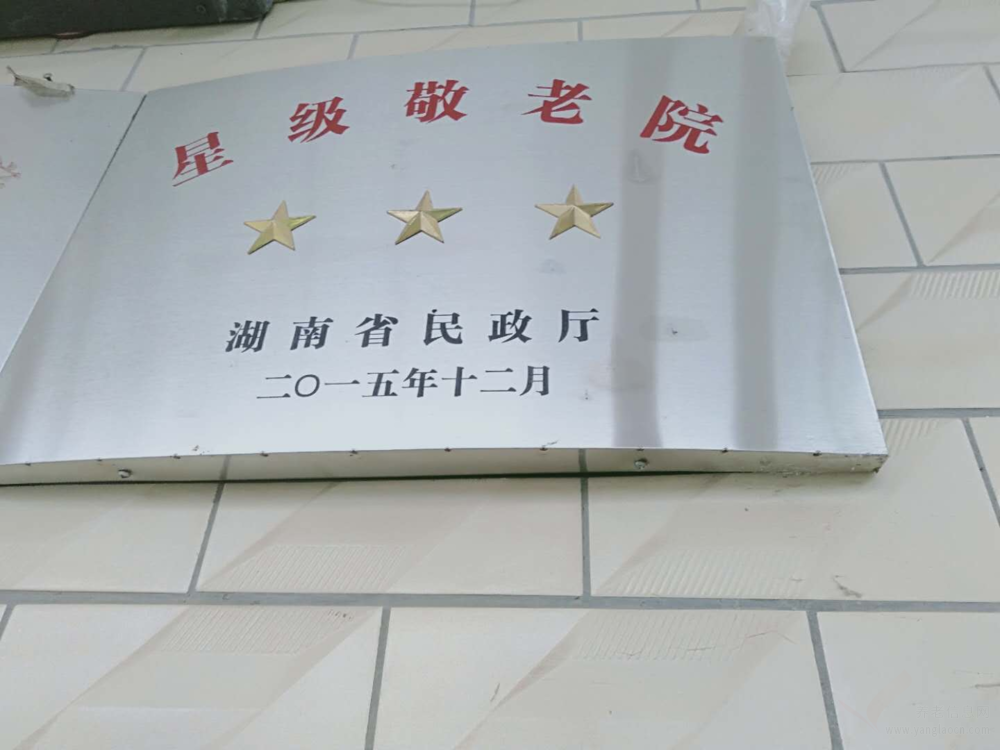 星级敬老院
湖南省民政厅
二〇一五年十二月